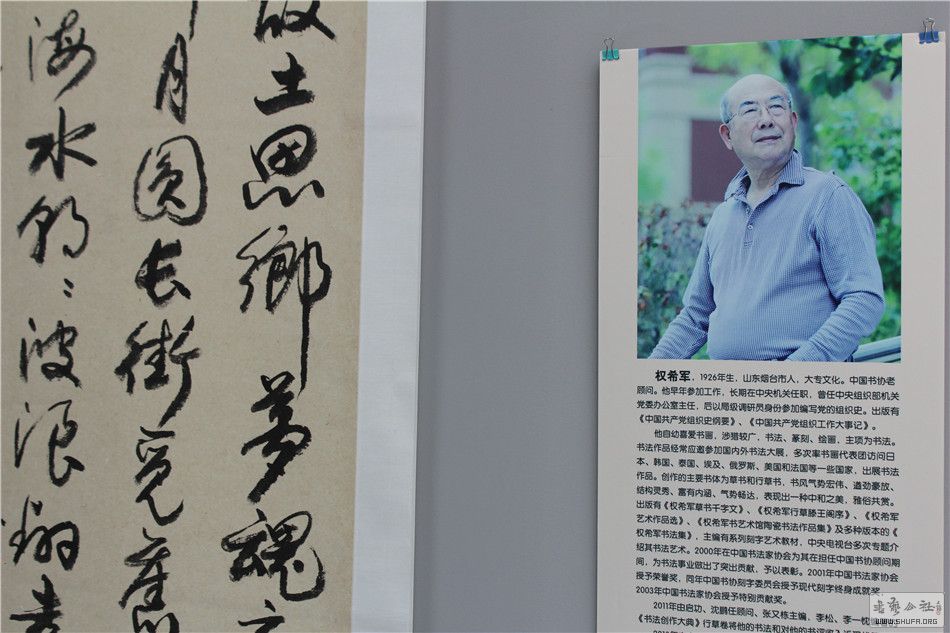 土思鄉夢魂
月圆长街觅
海水 波浪翻
权希军，1926年生，山东烟台市人，大专文化。中国书协老
顾问。他早年参加工作，长期在中央机关任职，曾任中央组织部机关
党委办公室主任，后以局级调研员身份参加编写党的组织史。出版有
《中国共产党组织史纲要》、《中国共产党组织工作大事记》。
他自幼喜爱书画，涉猎较广，书法、篆刻、绘画，主项为书法。
书法作品经常应邀参加国内外书法大展，多次率书画代表团访问日
本、韩国、泰国、埃及、俄罗斯、美国和法国等一些国家，出展书法
作品。创作的主要书体为草书和行草书，书风气势宏伟、遒劲豪放、
结构灵秀、富有内涵、气势畅达，表现出一种中和之美，雅俗共赏。
出版有《权希军草书千字文》、《权希军行草滕王阁序》、《权希军
艺术作品选》、《权希军书艺术馆陶瓷书法作品集》及多种版本的《
权希军书法集》，主编有系列刻字艺术教材，中央电视台多次专题介
绍其书法艺术。2000年在中国书法家协会为其在担任中国书协顾问期
间，为书法事业做出了突出贡献，予以表彰。2001年中国书法家协会
授予荣誉奖，同年中国书协刻字委员会授予现代刻字终身成就奖，
2003年中国书法家协会授予特别贡献奖。
2011年由启功、沈鹏任顾问、张又栋主编，李松、李一忱
《书法创作大典》行草卷将他的书法和对他的书评
WWW.SHUFA.ORG